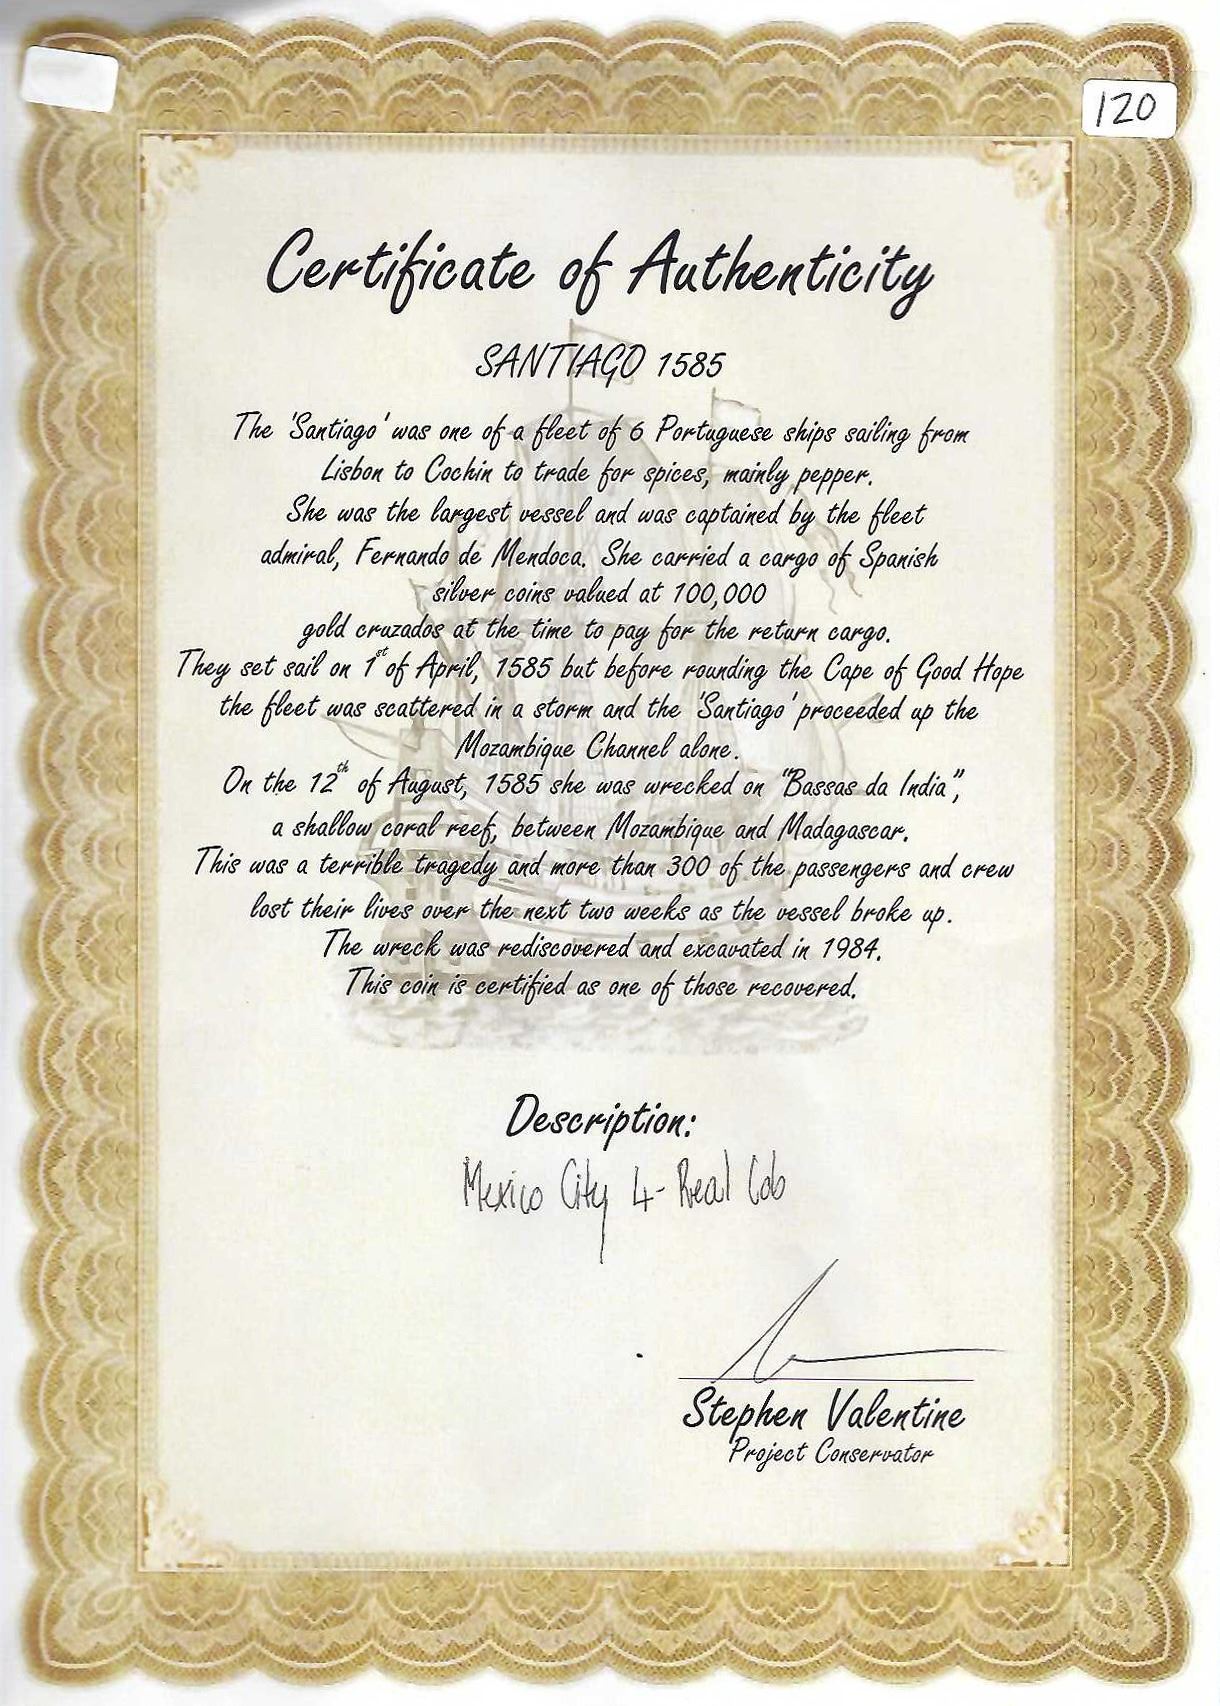 120
Certificate of Authenticity
SANTIAGO 1585
The 'Santiago' was one of a fleet of 6 Portuguese ships sailing from
Lisbon to Cochin to trade for spices, mainly pepper.
She was the largest vessel and was captained by the fleet
admiral, Fernando de Mendoca. She carried a cargo of Spanish
silver coins valued at 100,000
gold cruzados at the time to pay for the return cargo.
They set sail on 1st of April, 1585 but before rounding the Cape of Good Hope
the fleet was scattered in a storm and the 'Santiago' proceeded up the
Mozambique Channel alone.
On the 12th of August, 1585 she was wrecked on "Bassas da India",
a shallow coral reef, between Mozambique and Madagascar.
This was a terrible tragedy and more than 300 of the passengers and crew
lost their lives over the next two weeks as the vessel broke up.
The wreck was rediscovered and excavated in 1984.
This coin is certified as one of those recovered.
Description:
Mexico City 4-Real Cob
Stephen Valentine
Project Conservator